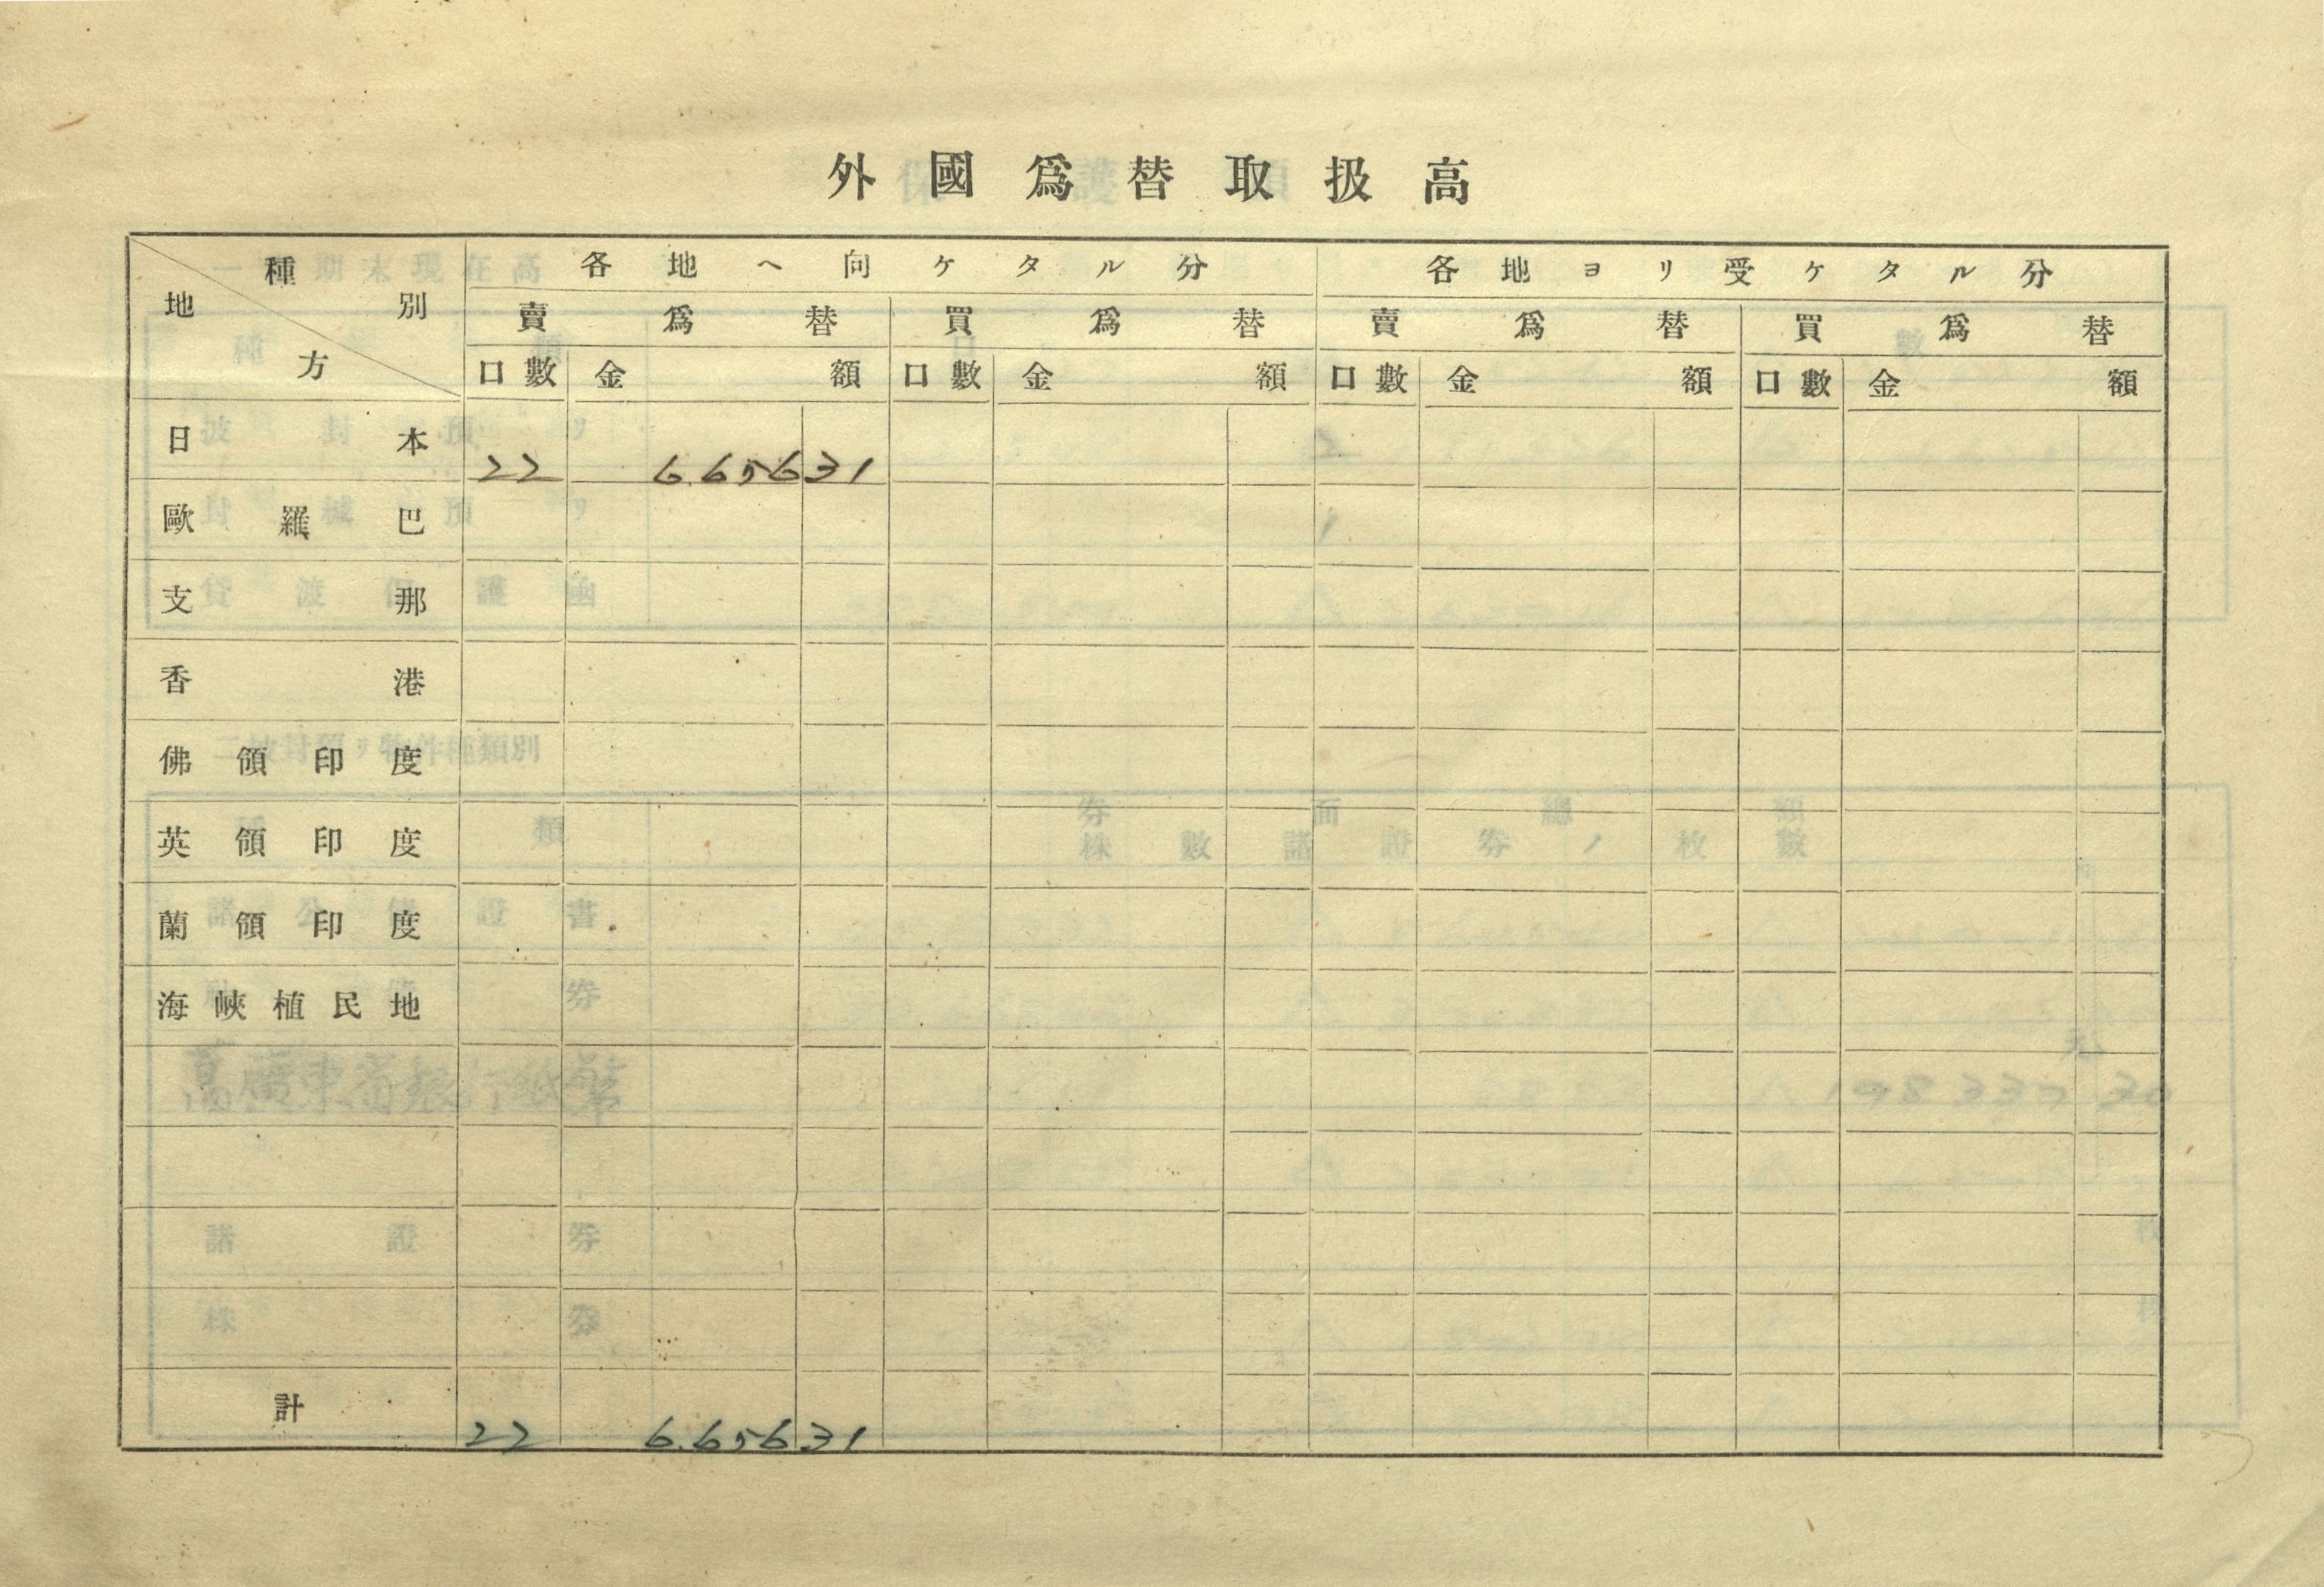 外國爲替取扱高
種別 地方 各地ヘ向ケタル分 各地ヨリ受ケタル分
賣爲替 買爲替 賣爲替 買爲替
口數 金額 口數 金額 口數 金額 口數 金額
日本 22 6.656 31
歐羅巴
支那
香港
佛領印度
英領印度
蘭領印度
海峽植民地
計 22 6.656 31